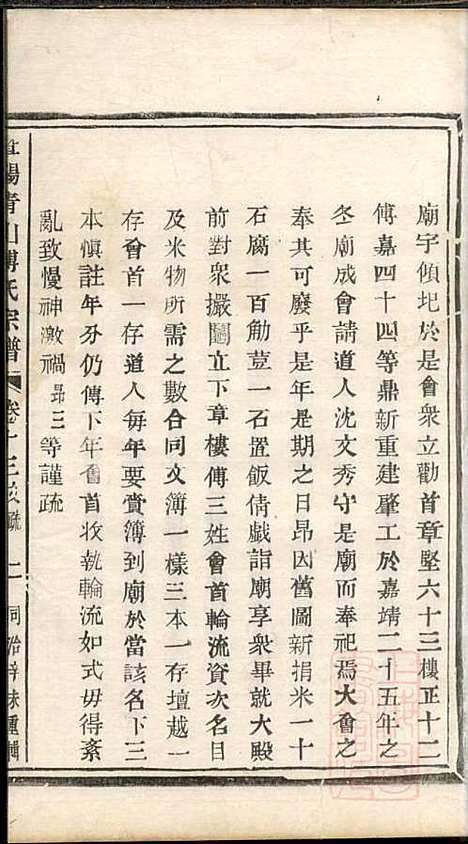 廟宇傾圯於是會衆立勸首章堅六十三樓正十二
傅嘉四十四等鼎新重建肇工於嘉靖二十五年之
冬廟成會請道人沈文秀守是廟而奉祀焉大會之
奉其可廢乎是年是期之日昂因舊圖新捐米一十
石腐一百觔荳一石置飯倩戯詣廟享衆畢就大殿
前對衆撮鬮立下章樓傅三姓會首輪流資次名目
及米物所需之數合同文簿一樣三本一存壇越一
存會首一存道人每年要賫簿到廟於當該名下三
本慎註年分仍傳下年會首收執輪流如式毋得紊
亂致慢神激禍昂三等謹疏
陽青山傅氏宗譜 卷十三 疏 二 同治辛未重輯